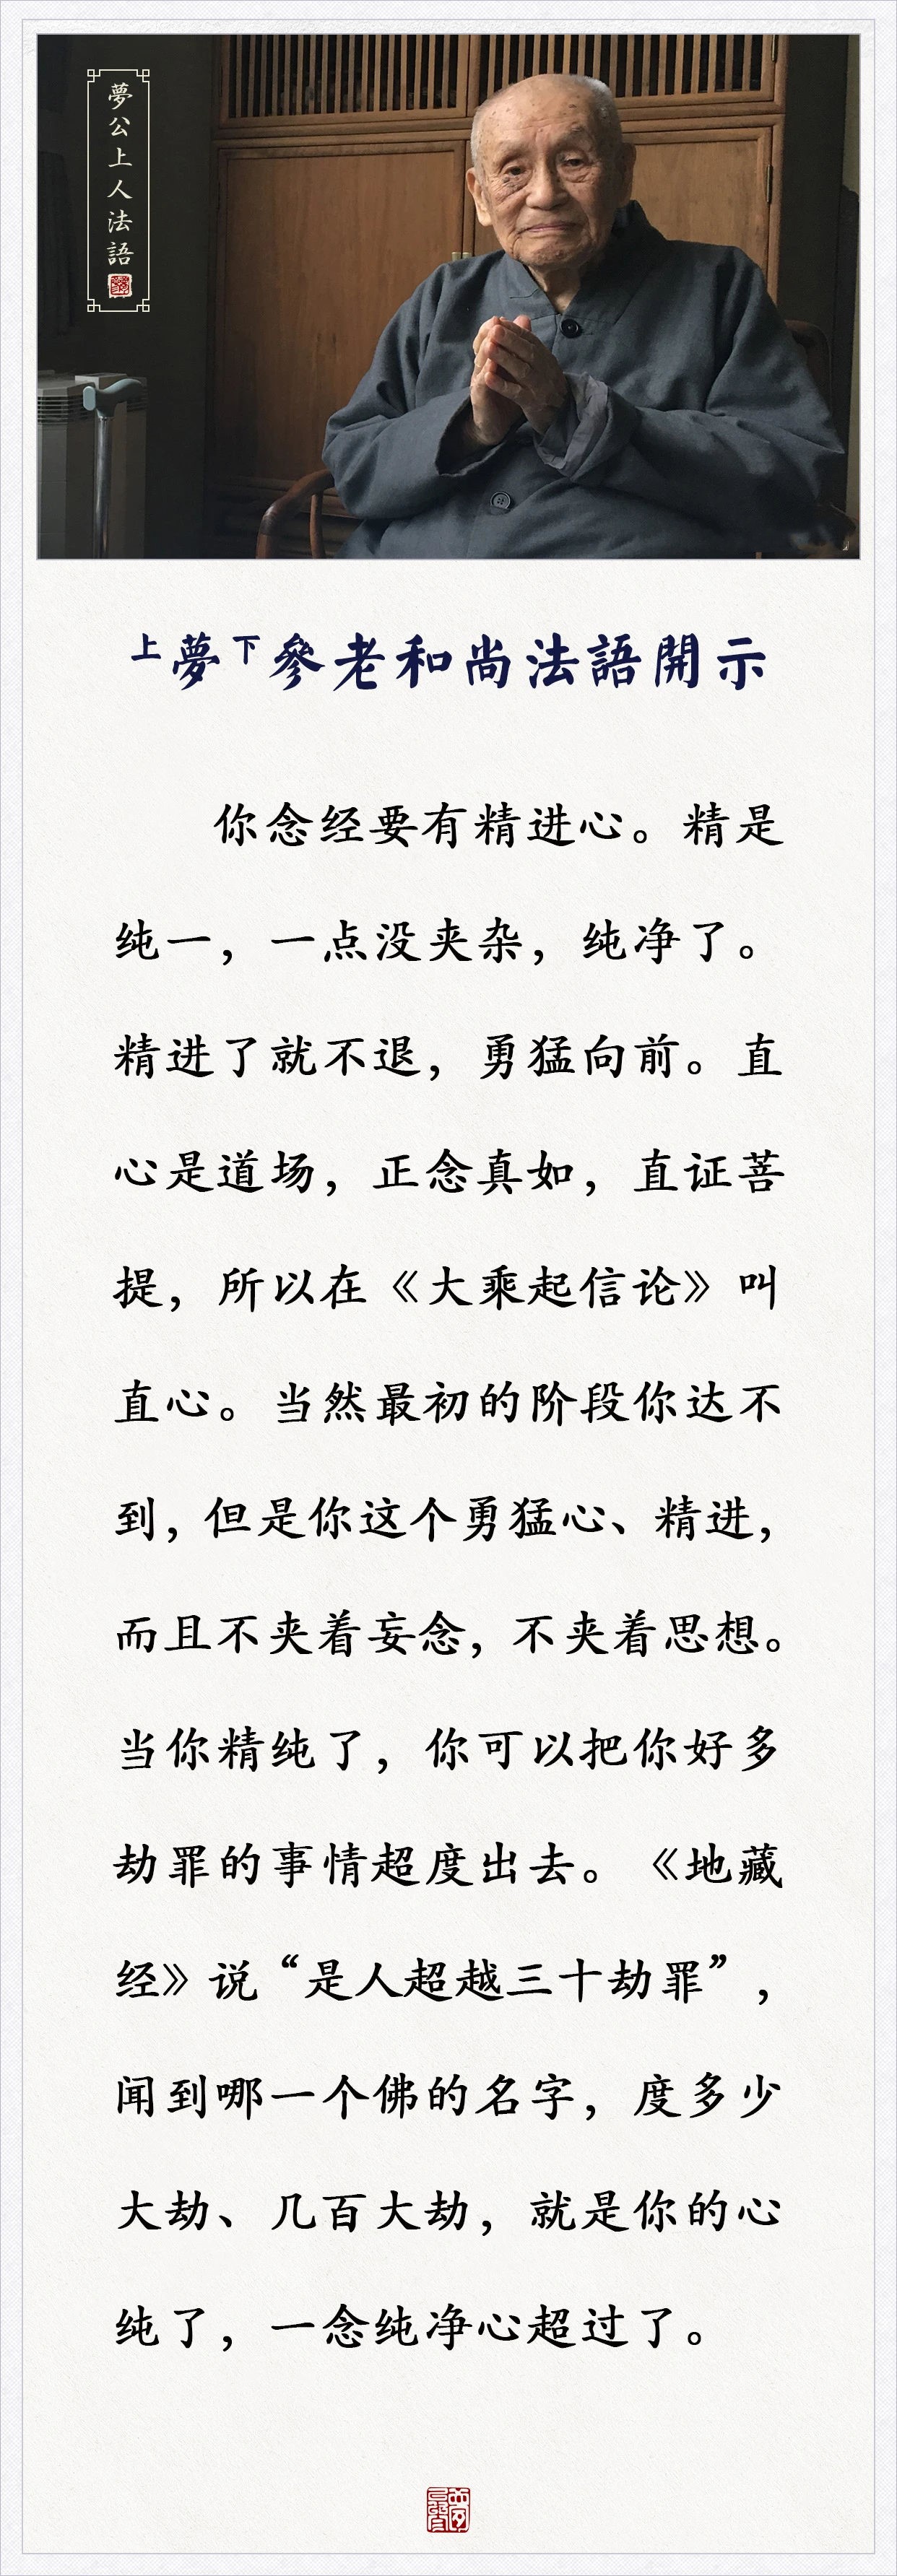 夢公上人法語
上夢下參老和尚法語開示
你念经要有精进心。精是
纯一，一点没夹杂，纯净了。
精进了就不退，勇猛向前。直
心是道场，正念真如，直证菩
提，所以在《大乘起信论》叫
直心。当然最初的阶段你达不
到，但是你这个勇猛心、精进，
而且不夹着妄念，不夹着思想。
当你精纯了，你可以把你好多
劫罪的事情超度出去。《地藏
经》说“是人超越三十劫罪”，
闻到哪一个佛的名字，度多少
大劫、几百大劫，就是你的心
纯了，一念纯净心超过了。